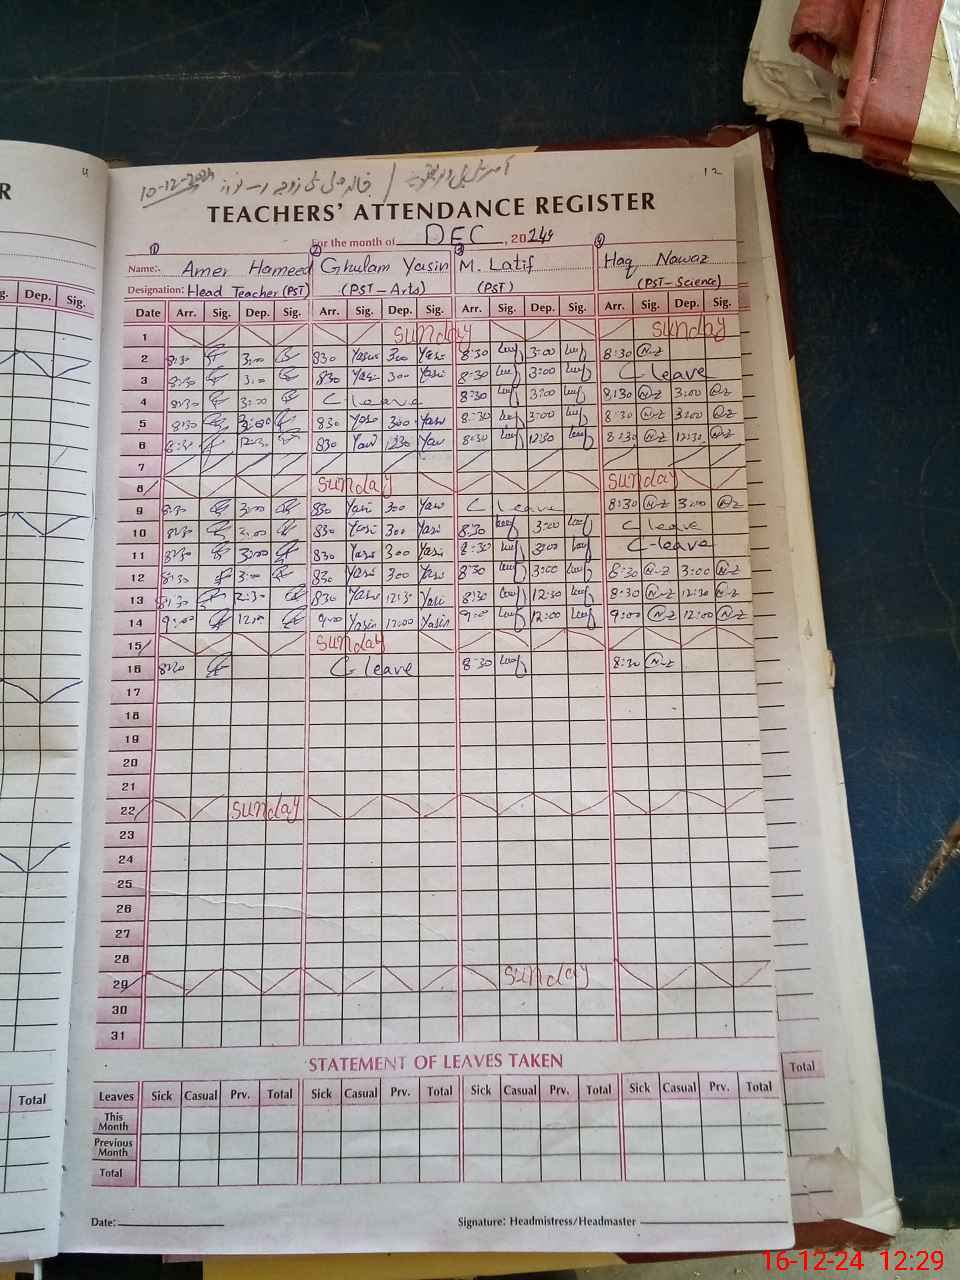 R
4
12
10-12-2024
TEACHERS' ATTENDANCE REGISTER
For the month of DEC, 2024
1 2 3 4
Name:. Amer Hameed Ghulam Yasin M. Latif Haq Nawaz
Designation: Head Teacher (PST) (PST-Arts) (PST) (PST-Science)
g. Dep. Sig.
Date Arr. Sig. Dep. Sig. Arr. Sig. Dep. Sig. Arr. Sig. Dep. Sig. Arr. Sig. Dep. Sig.
1 Sunday Sunday
2 8:30 3:00 830 Yasin 300 Yasin 8:30 3:00 8:30 N-Z
3 8:30 3:00 830 Yasi 300 Yasi 8:30 3:00 C leave
4 8:30 3:00 C leave 8:30 3:00 8:30 N-Z 3:00 N-Z
5 8:30 3:00 830 Yasi 300 Yasi 8:30 3:00 8:30 N-Z 3:00 N-Z
6 8:30 12:30 830 Yasi 1230 Yasi 8:30 12:30 8:30 N-Z 12:30 N-Z
7
8 Sunday Sunday
9 8:30 3:00 830 Yasi 300 Yasi C leave 8:30 N-Z 3:00 N-Z
10 8:30 3:00 830 Yasi 300 Yasi 8:30 3:00 C leave
11 8:30 3:00 830 Yasi 300 Yasi 8:30 3:00 C-leave
12 8:30 3:00 830 Yasi 300 Yasi 8:30 3:00 8:30 N-Z 3:00 N-Z
13 8:30 12:30 830 Yasi 12:30 Yasi 8:30 12:30 8:30 N-Z 12:30 N-Z
14 9:00 12:00 9:00 Yasin 12:00 Yasin 9:00 12:00 9:00 N-Z 12:00 N-Z
15 Sunday
16 8:30 C leave 8:30 8:30 N-Z
17
18
19
20
21
22 Sunday
23
24
25
26
27
28
29 Sunday
30
31
STATEMENT OF LEAVES TAKEN
Total
Total
Leaves Sick Casual Prv. Total Sick Casual Prv. Total Sick Casual Prv. Total Sick Casual Prv. Total
This Month
Previous Month
Total
Date: Signature: Headmistress/Headmaster
16-12-24 12:29